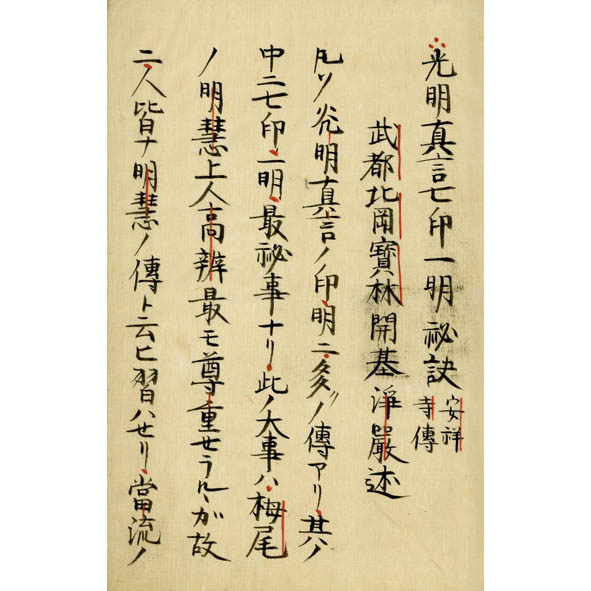 光明真言七印一明祕訣安祥寺傳
武都北岡寶林開基淨嚴述
凡ソ光明真言ノ印明ニ多ノ傳アリ其ノ
中ニ七印一明最祕事ナリ此ノ大事ハ栂尾
ノ明慧上人高辨最モ尊重セラルヽガ故
ニ人皆ナ明慧ノ傳ト云ヒ習ハセリ當流ノ